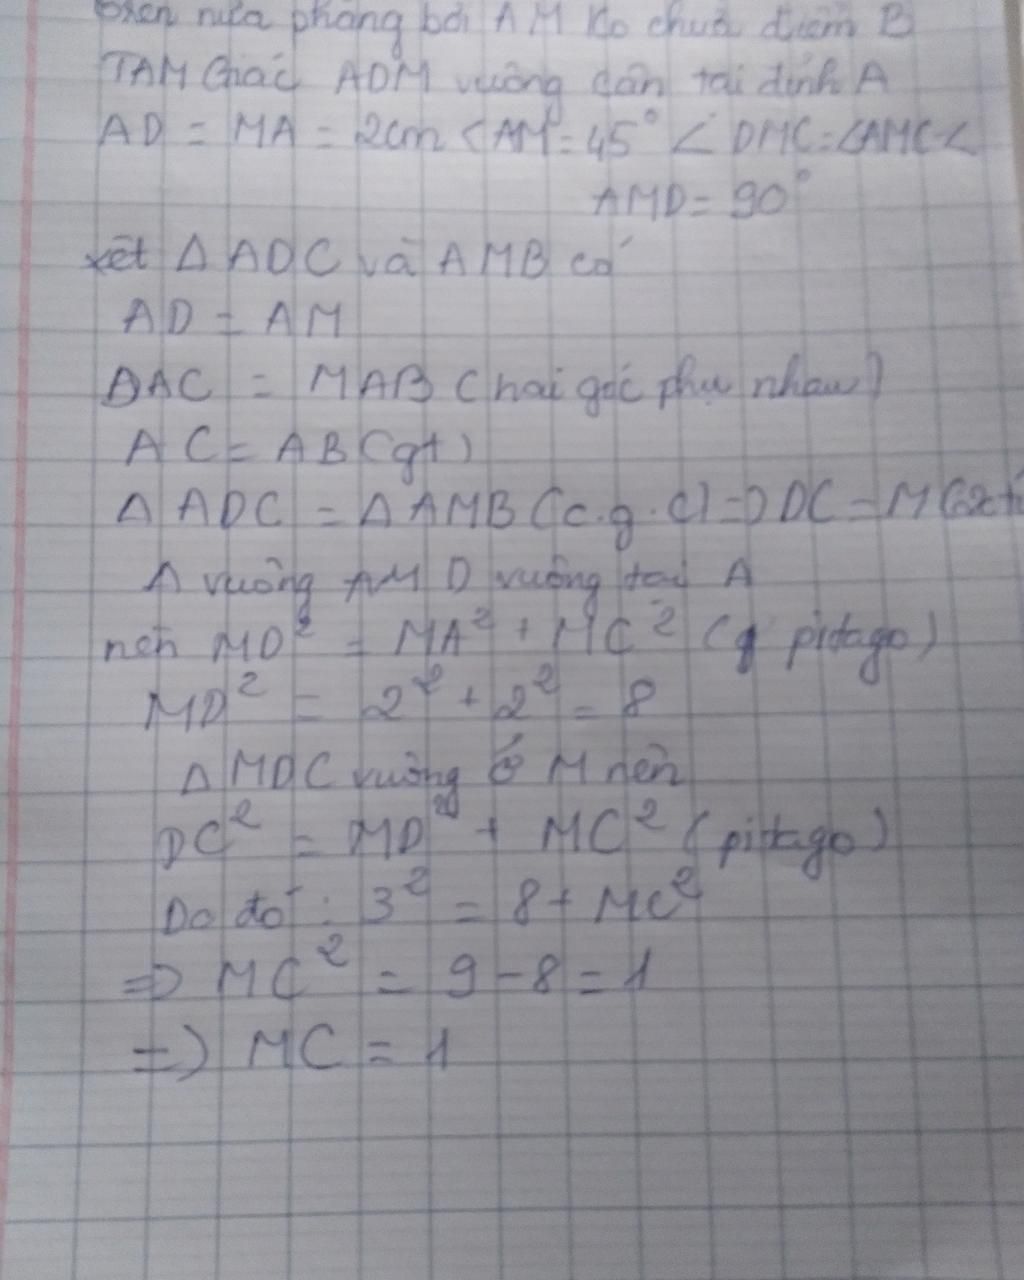 nửa phẳng bởi AM ko chứa điểm B
TAM Giác ADM vuông cân tại đỉnh A
AD = MA = 2cm < AM = 45° < DMC = <AMC <
AMD = 90°
xét Δ ADC và AMB có
AD = AM
DAC = MAB (hai góc phụ nhau)
AC = AB (gt)
Δ ADC = Δ AMB (c.g.c) => DC = M
Δ vuông AMD vuông tại A
nên MD² = MA² + MC² ( pitago)
MD² = 2² + 2² = 8
Δ MDC vuông ở M nên
DC² = MD² + MC² (pitago)
Do đó : 3² = 8 + MC²
=> MC² = 9 - 8 = 1
=> MC = 1